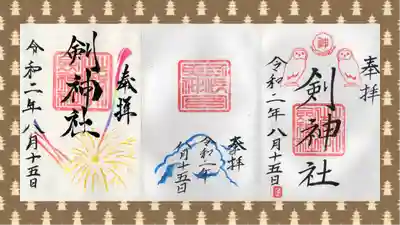 奉拝
剣神社
令和二年八月十五日
奉拝
令和二年
八月十五日
奉拝
剣神社
令和二年八月十五日